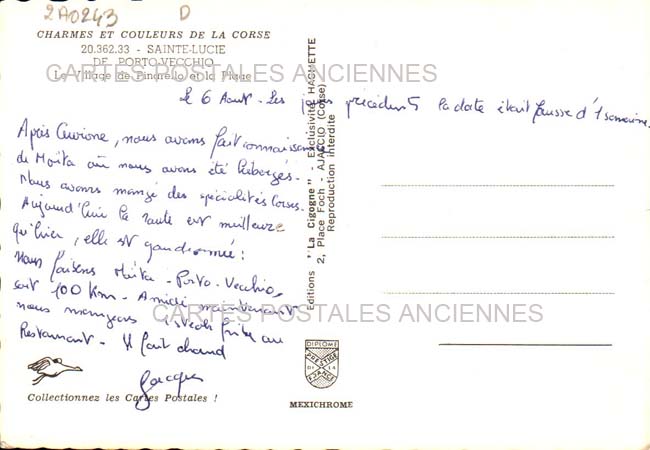 2A0243 D
CHARMES ET COULEURS DE LA CORSE
20.362.33 - SAINTE-LUCIE
DE PORTO-VECCHIO
Le Village de Pinarello et la Plage
CARTES POSTALES ANCIENNES
Le 6 Août - Les jours précédents la date était fausse d'1 semaine.
Après Cervione, nous avons fait connaissance
de Moïta où nous avons été hébergés.
Nous avons mangé des spécialités Corses.
Aujourd'hui la route est meilleure
qu'hier, elle est goudronnée :
Nous faisons Moïta - Porto-Vecchio,
soit 100 Km - A midi maintenant
nous mangeons 1 steak frites au
Restaurant - Il fait chaud
Jacques
CARTES POSTALES ANCIENNES
Collectionnez les Cartes Postales !
Editions "La Cigogne" - Exclusivité HACHETTE
2, Place Foch - AJACCIO (Corse)
Reproduction interdite
DIPLOME
PRESTIGE
DE LA
FRANCE
MEXICHROME